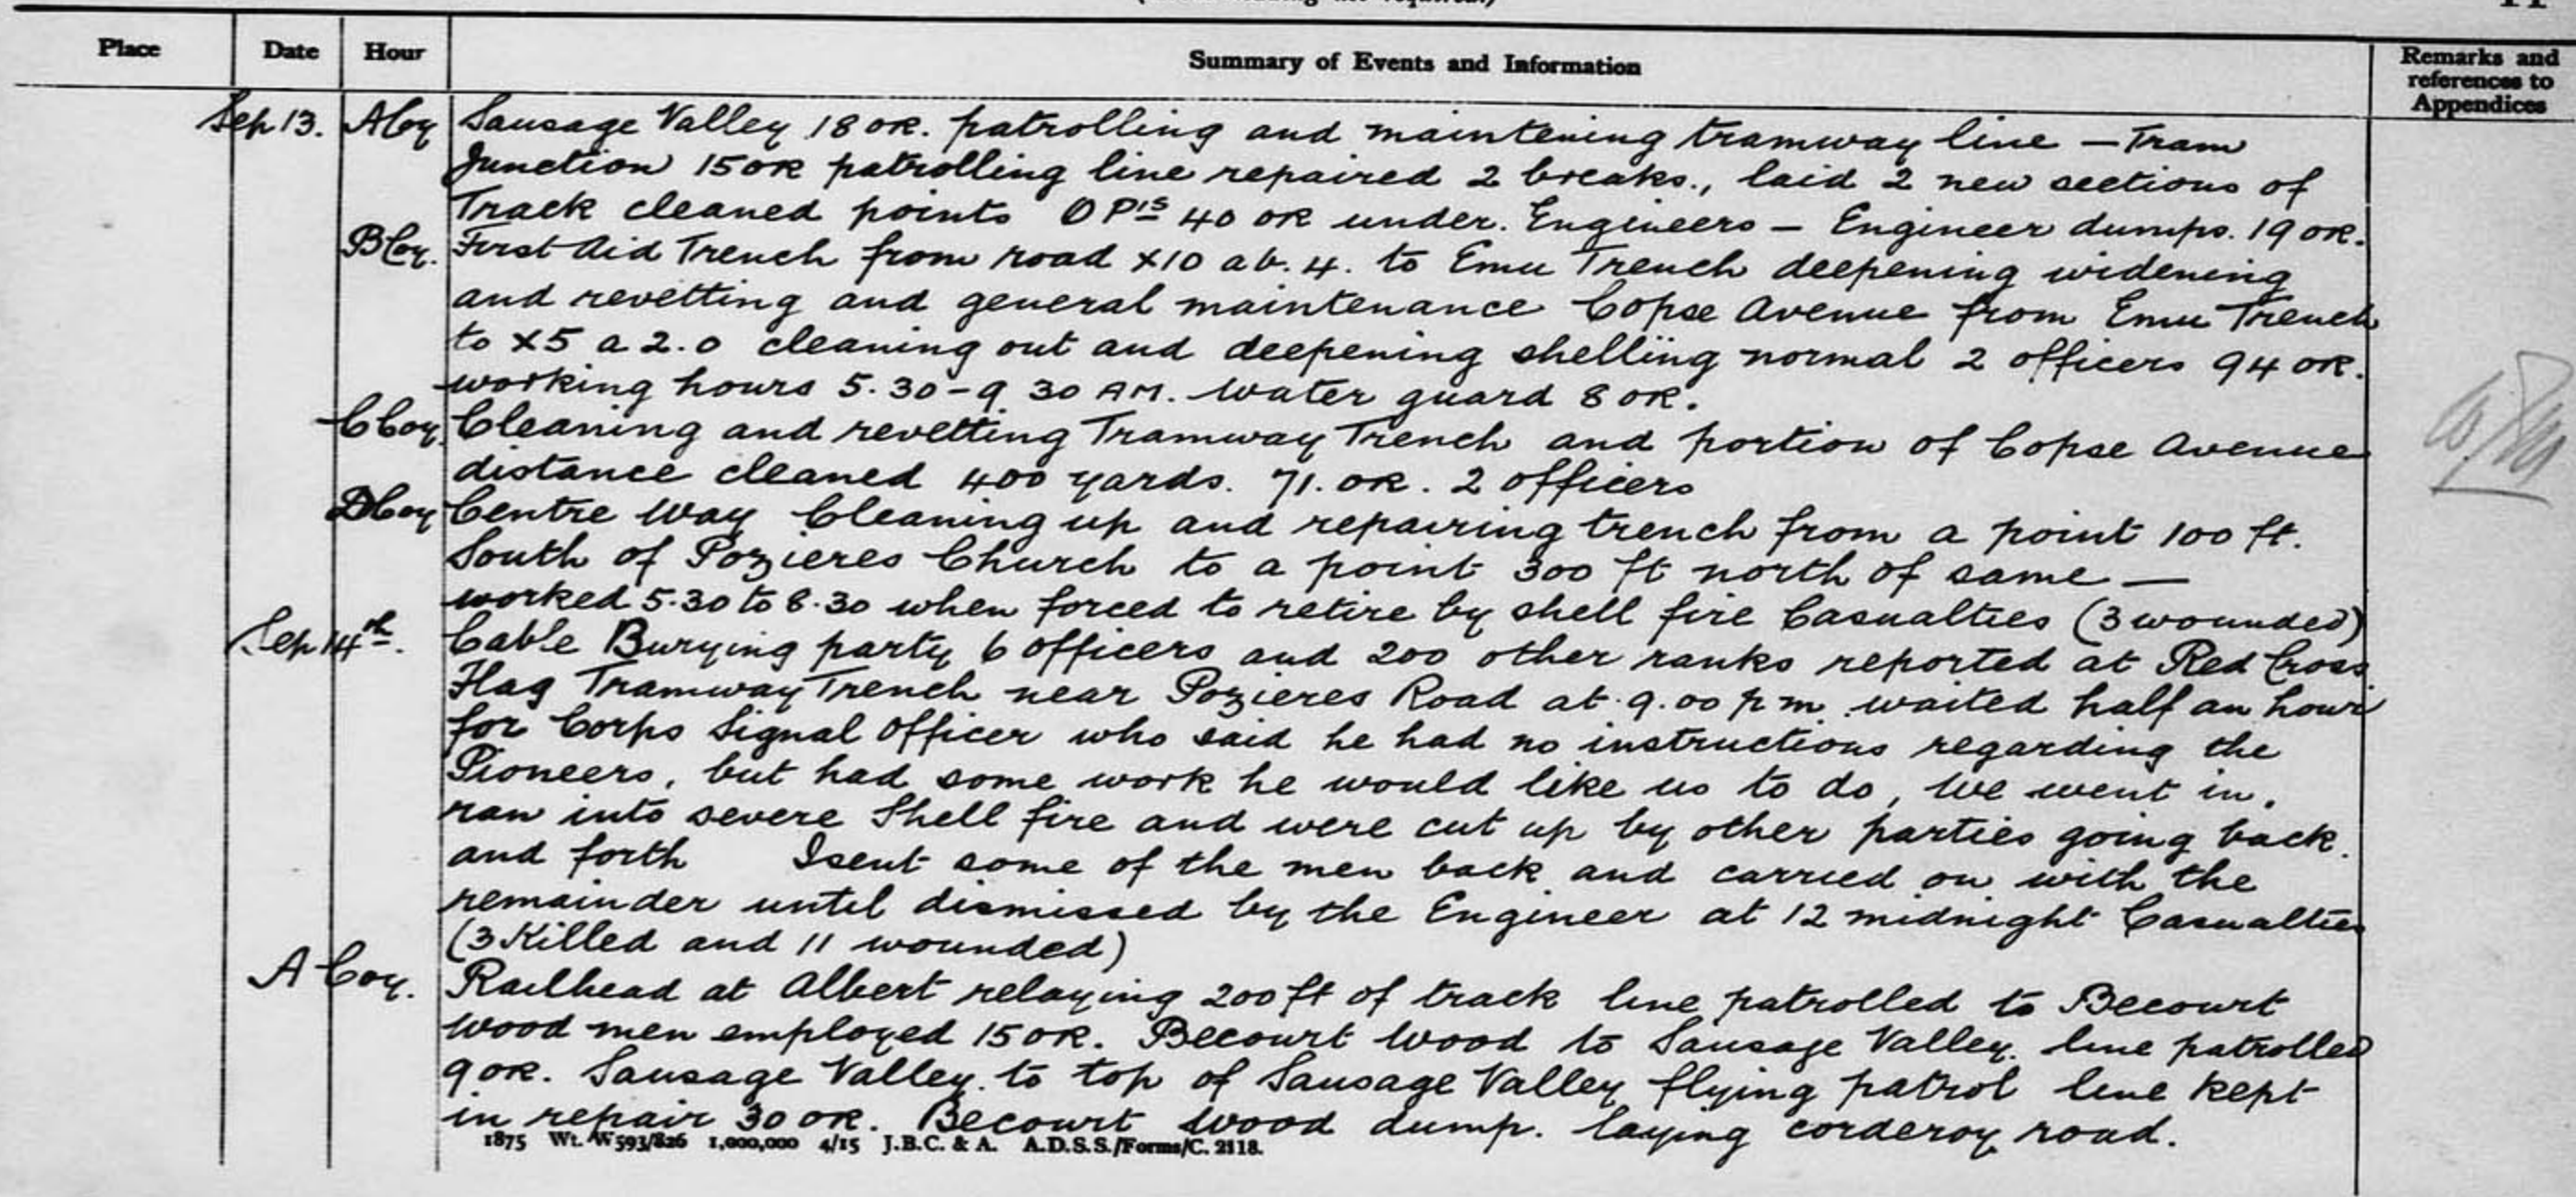 Place Date Hour Summary of Events and Information Remarks and references to Appendices
Sep 13. A Coy Sausage Valley 18 OR. patrolling and maintening tramway line — Tram
Junction 15 OR patrolling line repaired 2 breaks., laid 2 new sections of
Track cleaned points O Pts 40 OR under. Engineers — Engineer dumps. 19 OR.
B Coy. First Aid Trench from road X10 a b. 4. to Emu Trench deepening widening
and revetting and general maintenance Copse Avenue from Emu Trench
to X5 a 2.0 cleaning out and deepening shelling normal 2 officers 94 OR.
working hours 5.30-9 30 AM. Water guard 8 OR.
C Coy. Cleaning and revetting Tramway Trench and portion of Copse Avenue
distance cleaned 400 yards. 71. OR. 2 officers
D Coy Centre Way Cleaning up and repairing trench from a point 100 ft.
South of Pozieres Church to a point 300 ft north of same —
worked 5.30 to 8.30 when forced to retire by shell fire Casualties (3 wounded)
Sep 14th. Cable Burying party 6 officers and 200 other ranks reported at Red Cross
Flag Tramway Trench near Pozieres Road at 9.00 pm waited half an hour
for Corps Signal Officer who said he had no instructions regarding the
Pioneers, but had some work he would like us to do, We went in.
ran into severe Shell fire and were cut up by other parties going back.
and forth I sent some of the men back and carried on with the
remainder until dismissed by the Engineer at 12 midnight Casualties
(3 Killed and 11 wounded)
A Coy. Railhead at Albert relaying 200 ft of track line patrolled to Becourt
Wood men employed 15 OR. Becourt Wood to Sausage Valley. line patrolled
9 OR. Sausage Valley. to top of Sausage Valley flying patrol line kept
in repair 30 OR. Becourt Wood dump. laying corderoy road.
1875 Wt. W593/826 1,000,000 4/15 J.B.C. & A. A.D.S.S./Forms/C. 2118.